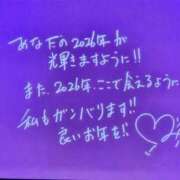 あなたの2026年が
輝きますように!!
また、2026年、ここで会えるように
私もガンバります!!
良いお年を!!